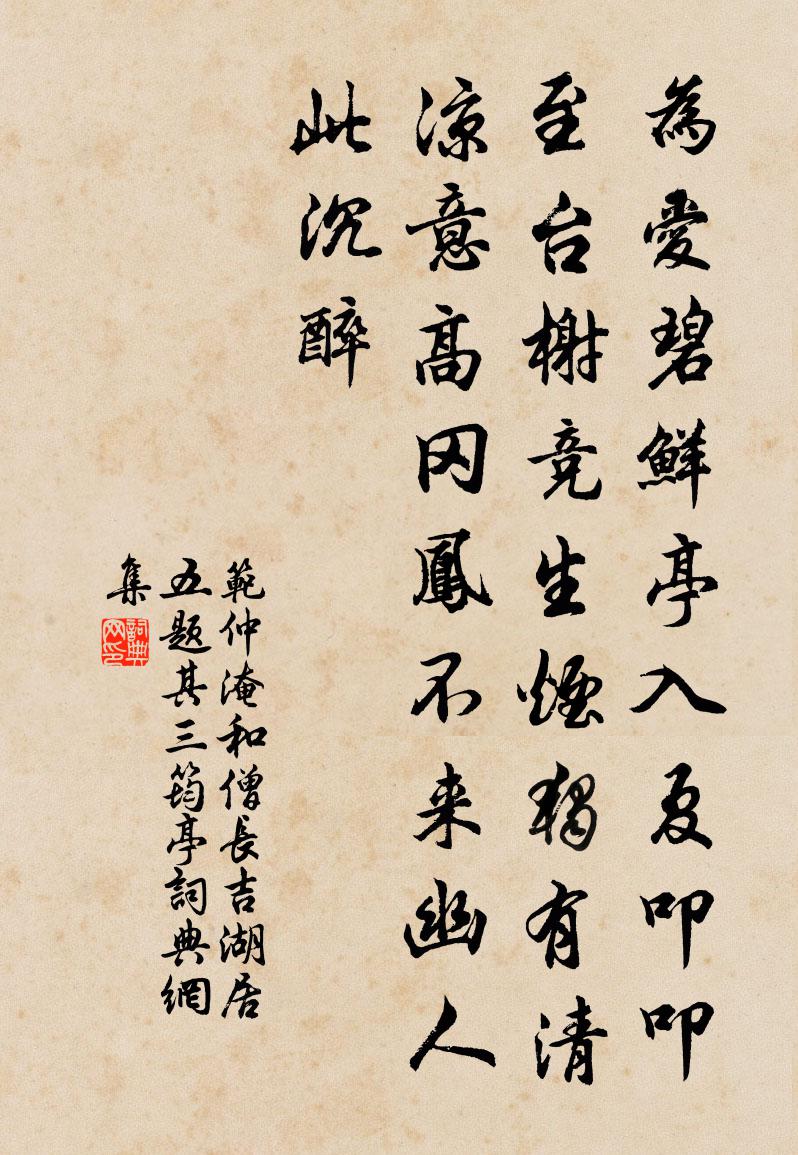 為愛碧鮮亭入夏叩叩
至台榭竞生煙獨有清
涼意高冈鳳不来幽人
此沉醉
範仲淹和僧長吉湖居
五题其三筠亭詞典網
集
詞典網印